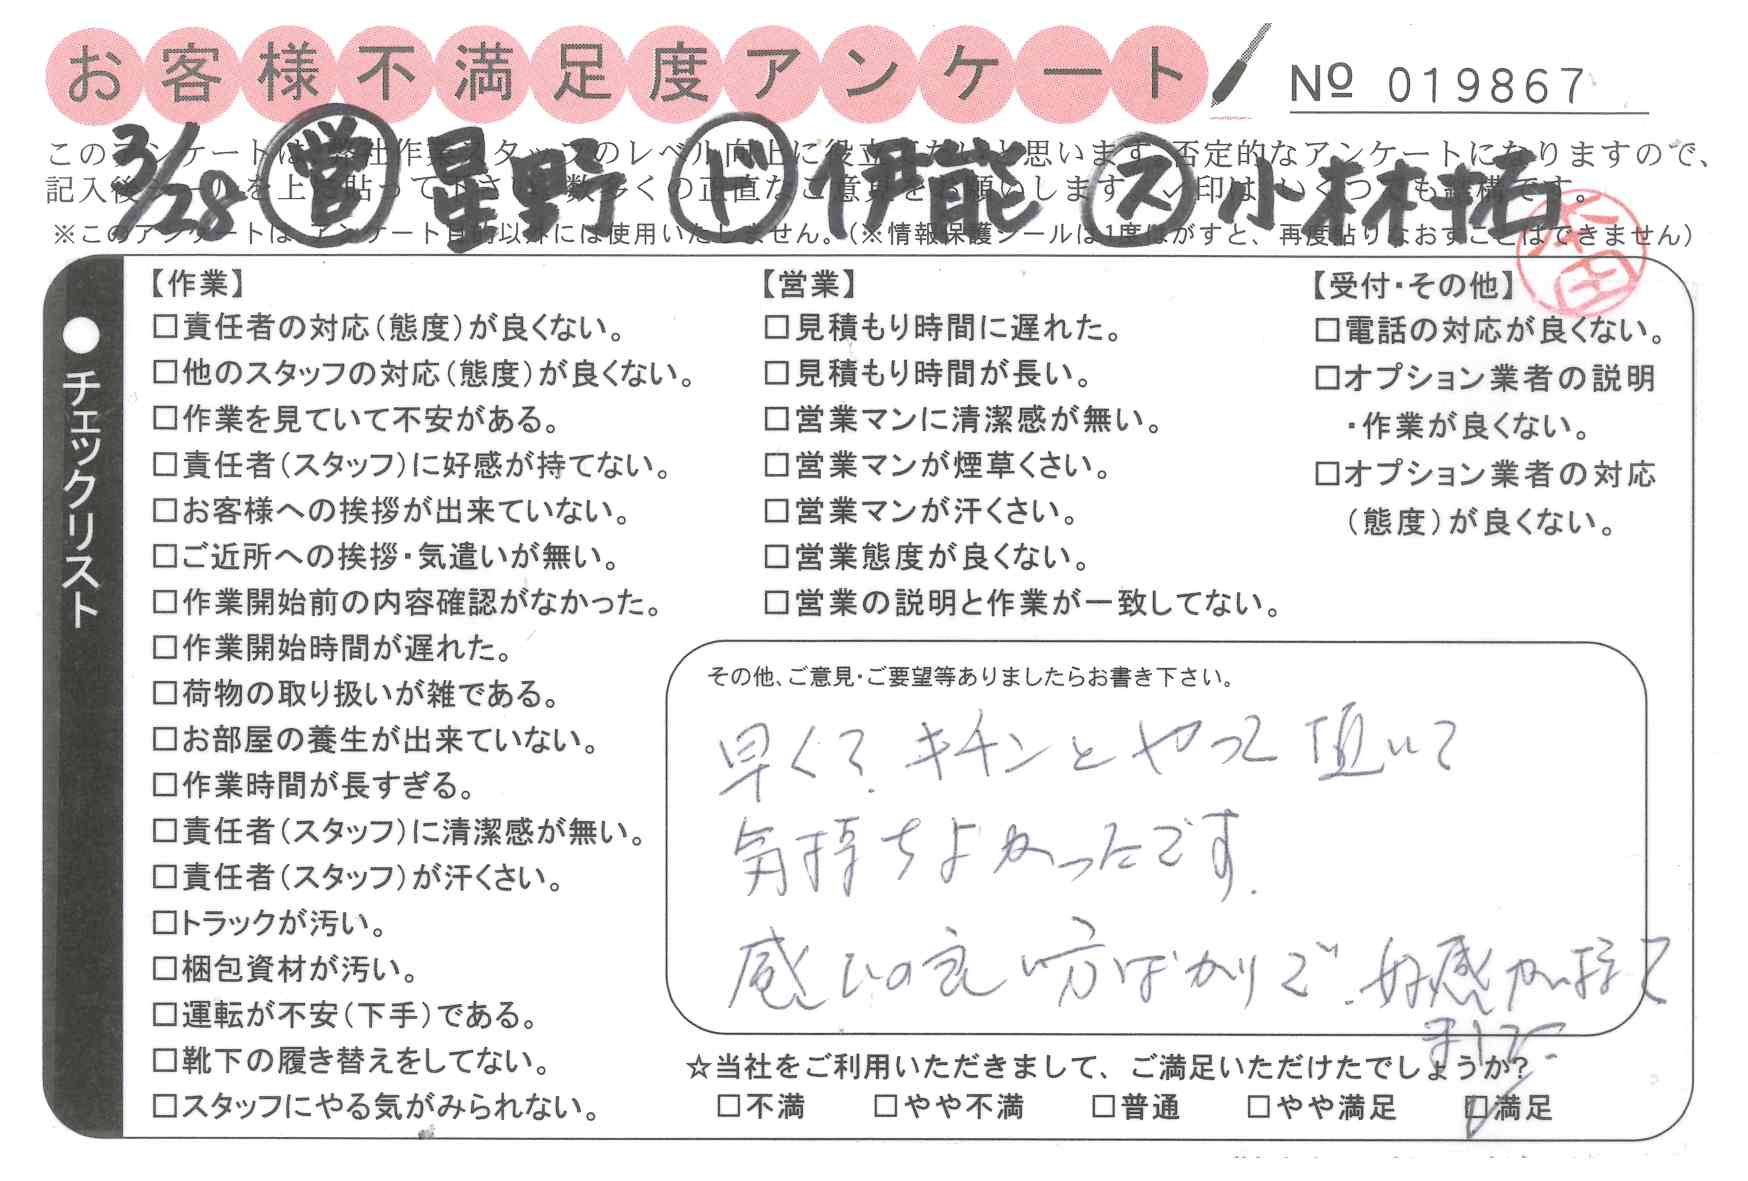 お客様不満足度アンケート
No 019867
3/28 営 星野 ド 伊能 ス 小林拓
このアンケートは、弊社作業スタッフのレベル向上に役立てたいと思います。否定的なアンケートになりますので、
記入後シールを上に貼って下さい。数多くの正直なご意見をお願いします。✓印は、いくつでも結構です。
※このアンケートは、アンケート目的以外には使用いたしません。(※情報保護シールは1度はがすと、再度貼りなおすことはできません)
チェックリスト
【作業】
□責任者の対応(態度)が良くない。
□他のスタッフの対応(態度)が良くない。
□作業を見ていて不安がある。
□責任者(スタッフ)に好感が持てない。
□お客様への挨拶が出来ていない。
□ご近所への挨拶・気遣いが無い。
□作業開始前の内容確認がなかった。
□作業開始時間が遅れた。
□荷物の取り扱いが雑である。
□お部屋の養生が出来ていない。
□作業時間が長すぎる。
□責任者(スタッフ)に清潔感が無い。
□責任者(スタッフ)が汗くさい。
□トラックが汚い。
□梱包資材が汚い。
□運転が不安(下手)である。
□靴下の履き替えをしてない。
□スタッフにやる気がみられない。
【営業】
□見積もり時間に遅れた。
□見積もり時間が長い。
□営業マンに清潔感が無い。
□営業マンが煙草くさい。
□営業マンが汗くさい。
□営業態度が良くない。
□営業の説明と作業が一致してない。
【受付・その他】
□電話の対応が良くない。
□オプション業者の説明
・作業が良くない。
□オプション業者の対応
(態度)が良くない。
その他、ご意見・ご要望等ありましたらお書き下さい。
早くて、キチンとやって頂いて
気持ちよかったです.
感じの良い方ばかりで、好感が持て
ました.
☆当社をご利用いただきまして、ご満足いただけたでしょうか?
□不満 □やや不満 □普通 □やや満足 ☑満足